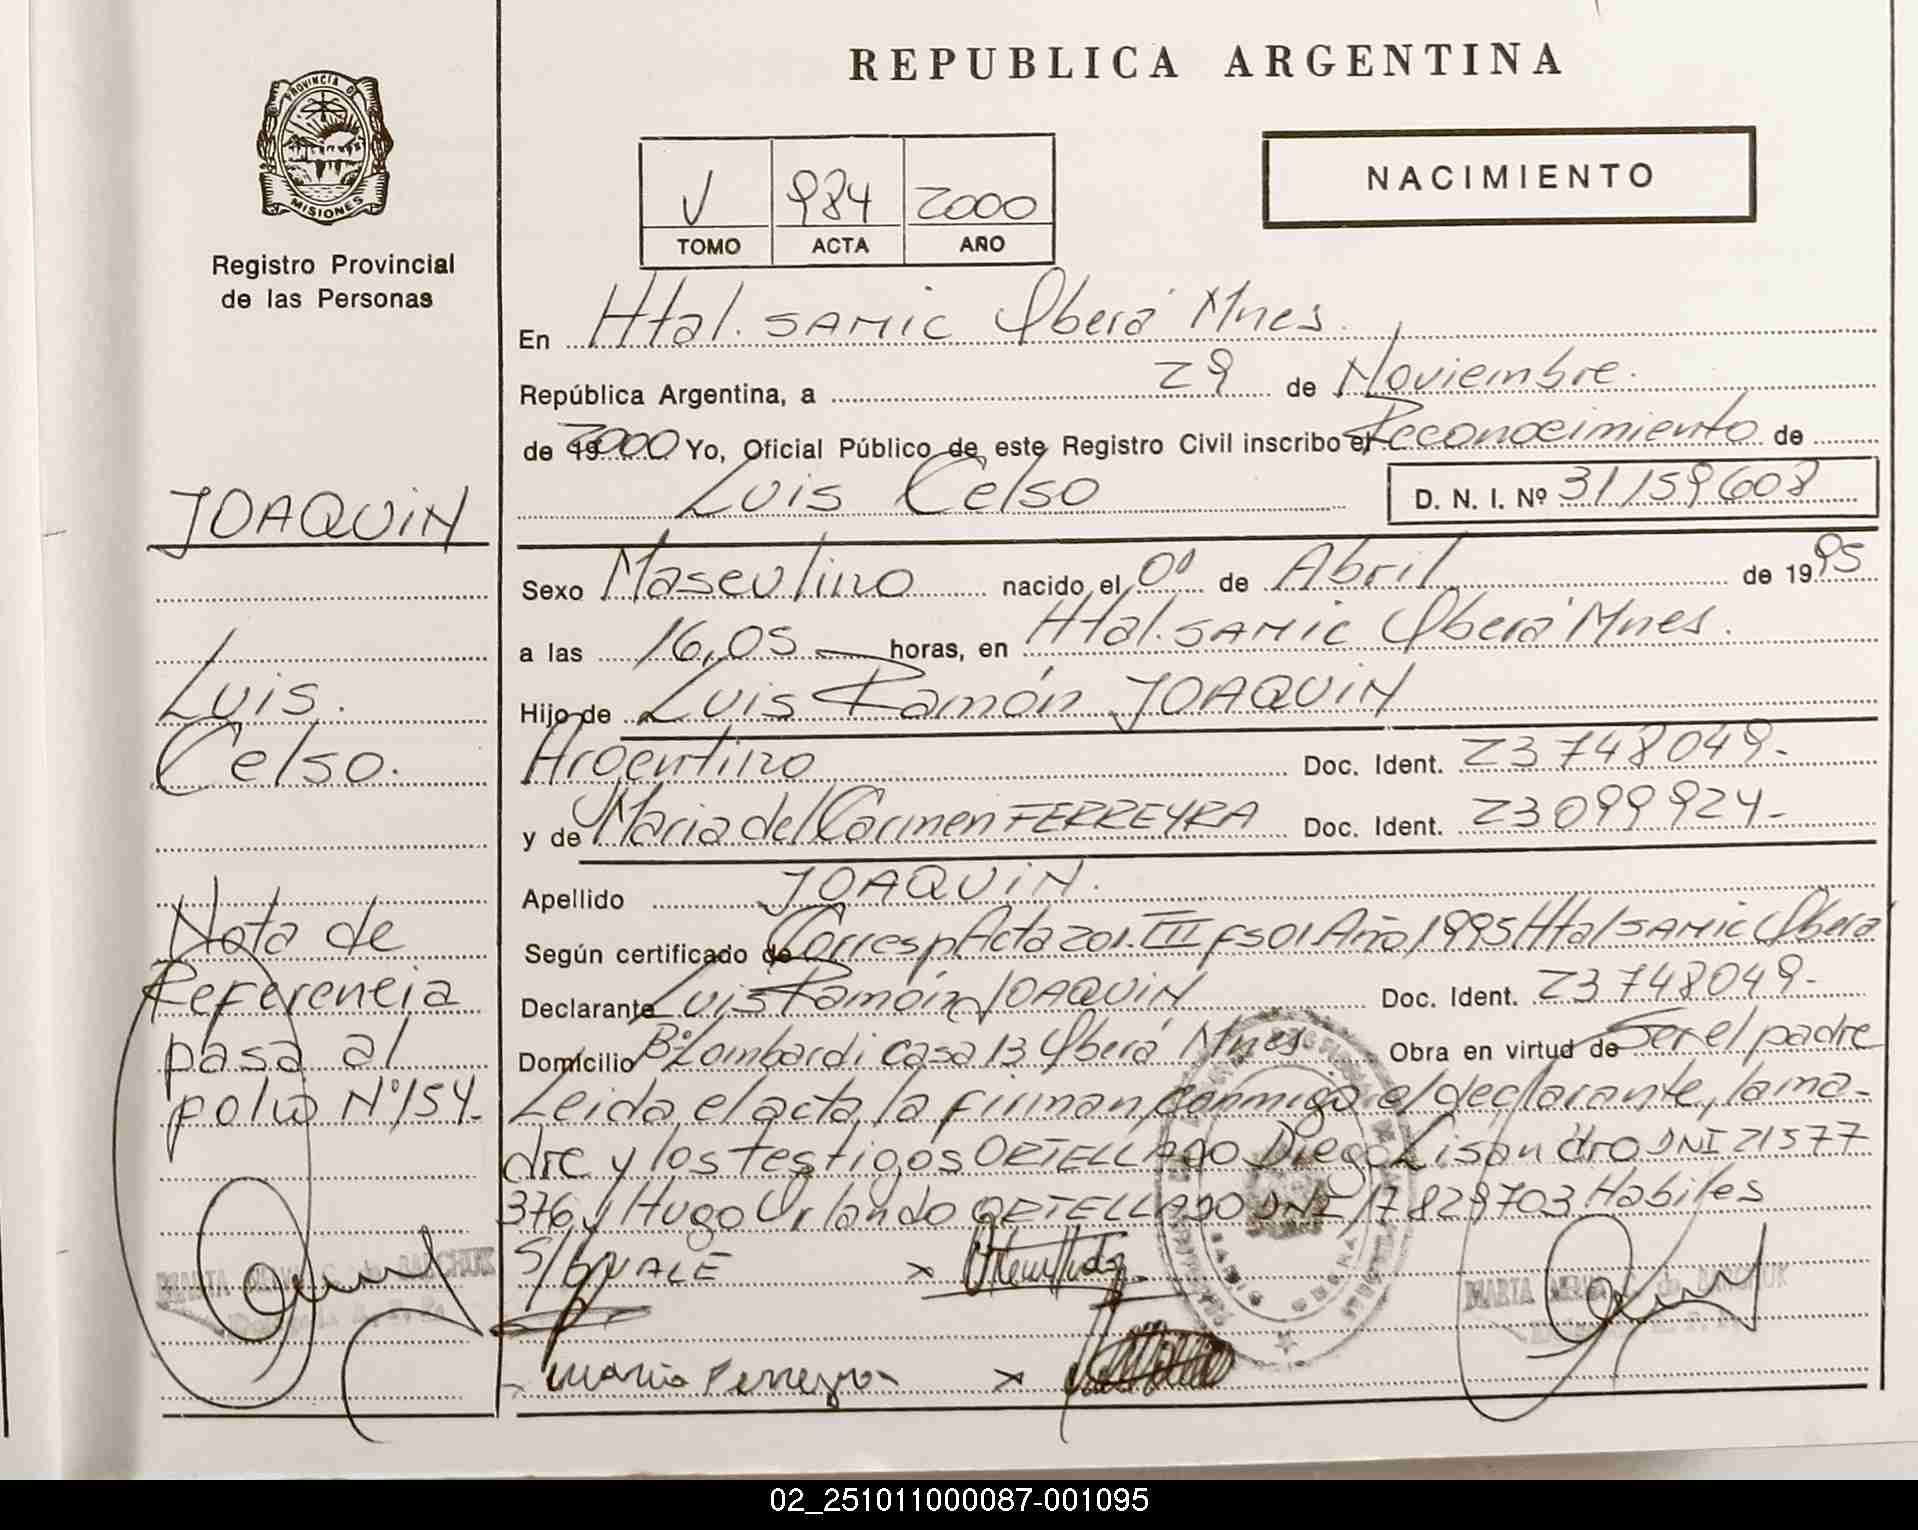 PROVINCIA DE
MISIONES
Registro Provincial
de las Personas
JOAQUIN
Luis.
Celso.
Nota de
Referencia
pasa al
polio Nº 154-
REPUBLICA ARGENTINA
V 984 2000
TOMO ACTA AÑO
NACIMIENTO
En Htal. SAMIC Oberá Mnes.
República Argentina, a 29 de Noviembre.
de 2000 Yo, Oficial Público de este Registro Civil inscribo el Reconocimiento de
Luis Celso D. N. I. Nº 31159608
Sexo Masculino nacido el 01 de Abril de 1995
a las 16,05 horas, en Htal. SAMIC Oberá Mnes.
Hijo de Luis Ramón JOAQUIN
Argentino Doc. Ident. 23748049-
y de Maria del Carmen FERREYRA Doc. Ident. 23099924-
Apellido JOAQUIN.
Según certificado de Corresp Acta 201. T III FS 01 Año 1995 Htal SAMIC Oberá
Declarante Luis Ramón JOAQUIN Doc. Ident. 23748049-
Domicilio Bº Lombardi casa 13 Oberá Mnes Obra en virtud de Ser el padre
Leida el acta, la firman conmigo el declarante, la ma-
dre y los testigos ORTELLADO Diego Lisandro DNI 21577
376 y Hugo Orlando ORTELLADO DNI 17829703 Habiles
S/B VALE
Maria Ferreyra
MARTA
MARTA
02_251011000087-001095